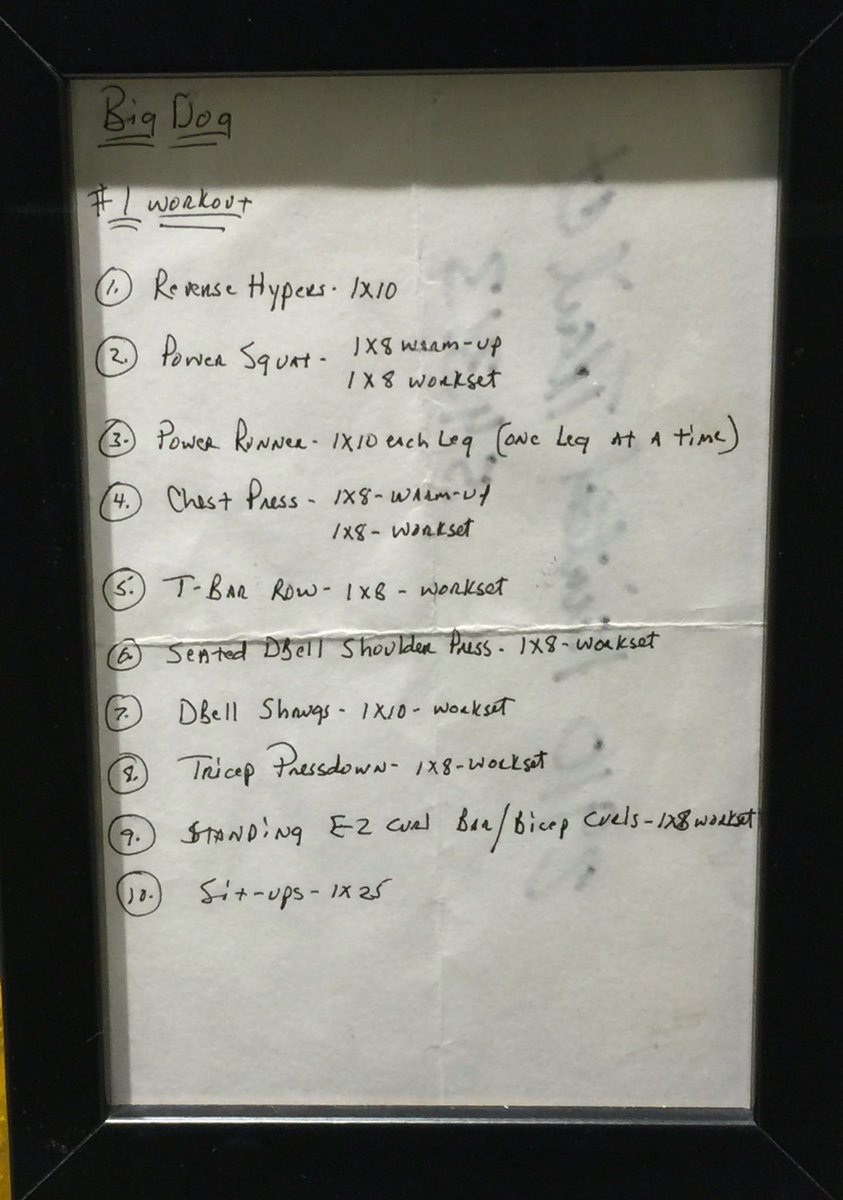 Big Dog
#1 workout
1. Reverse Hypers - 1x10
2. Power Squat - 1x8 warm-up
1x8 workset
3. Power Runner - 1x10 each Leg (one Leg at a time)
4. Chest Press - 1x8 - warm-up
1x8 - workset
5. T-Bar Row - 1x8 - workset
6. Seated DBell Shoulder Press - 1x8 - workset
7. DBell Shrugs - 1x10 - workset
8. Tricep Pressdown - 1x8 - workset
9. Standing E-Z Curl Bar/Bicep Curls - 1x8 workset
10. Sit-ups - 1x25